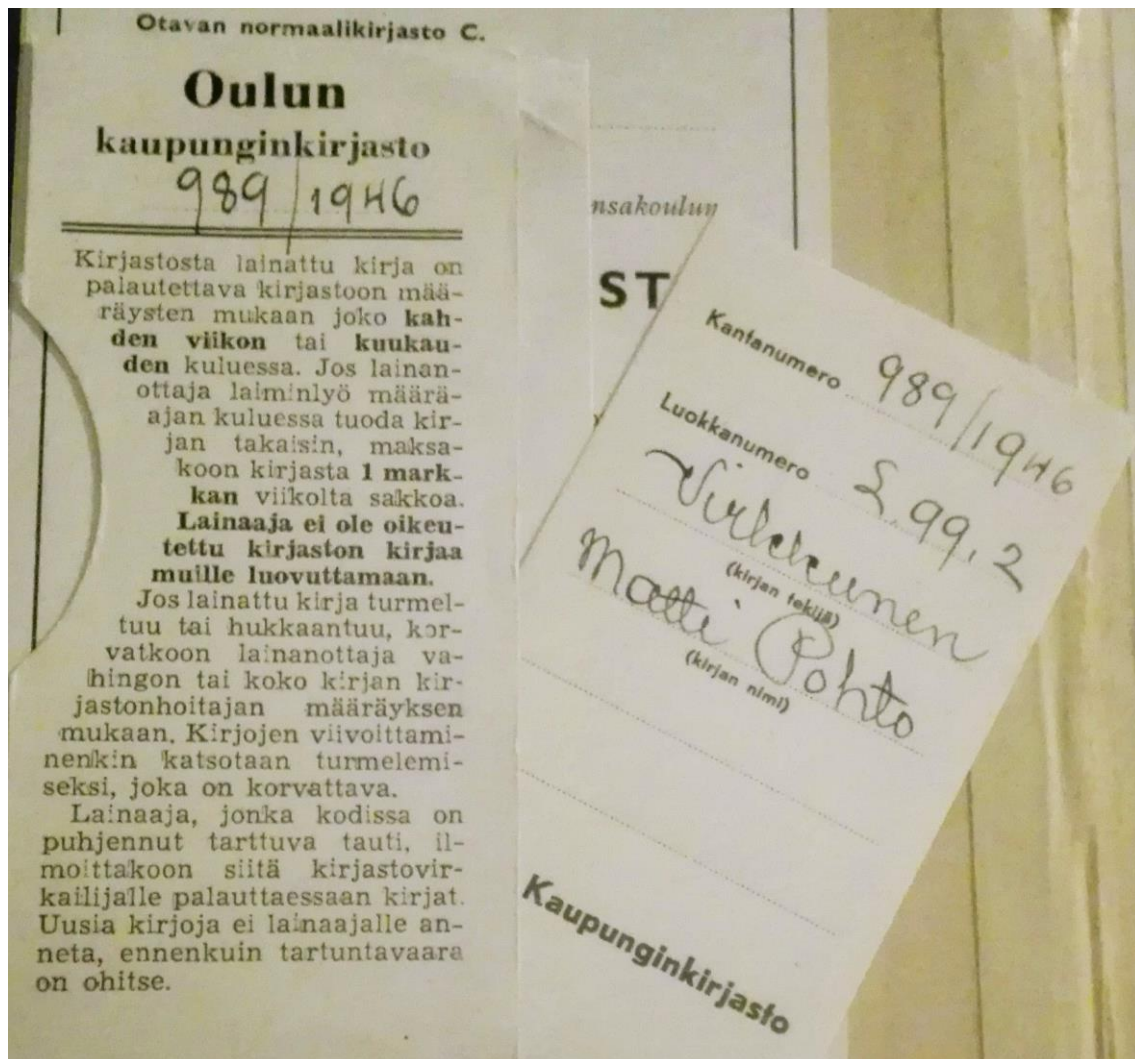 Otavan normaalikirjasto C.
Oulun
kaupunginkirjasto
989/1946
Kirjastosta lainattu kirja on
palautettava kirjastoon mää-
räysten mukaan joko kah-
den viikon tai kuukau-
den kuluessa. Jos lainan-
ottaja laiminlyö määrä-
ajan kuluessa tuoda kir-
jan takaisin, maksa-
koon kirjasta 1 mark-
kan viikolta sakkoa.
Lainaaja ei ole oikeu-
tettu kirjaston kirjaa
muille luovuttamaan.
Jos lainattu kirja turmel-
tuu tai hukkaantuu, kor-
vatkoon lainanottaja va-
hingon tai koko kirjan kir-
jastonhoitajan määräyksen
mukaan. Kirjojen viivoittami-
nenkin katsotaan turmelemi-
seksi, joka on korvattava.
Lainaaja, jonka kodissa on
puhjennut tarttuva tauti, il-
moittakoon siitä kirjastovir-
kailijalle palauttaessaan kirjat.
Uusia kirjoja ei lainaajalle an-
neta, ennenkuin tartuntavaara
on ohitse.
nsakoulun
ST
Kantanumero 989/1946
Luokkanumero 99.2
Virkkunen
(kirjan tekijä)
Matti Pohto
(kirjan nimi)
Kaupunginkirjasto